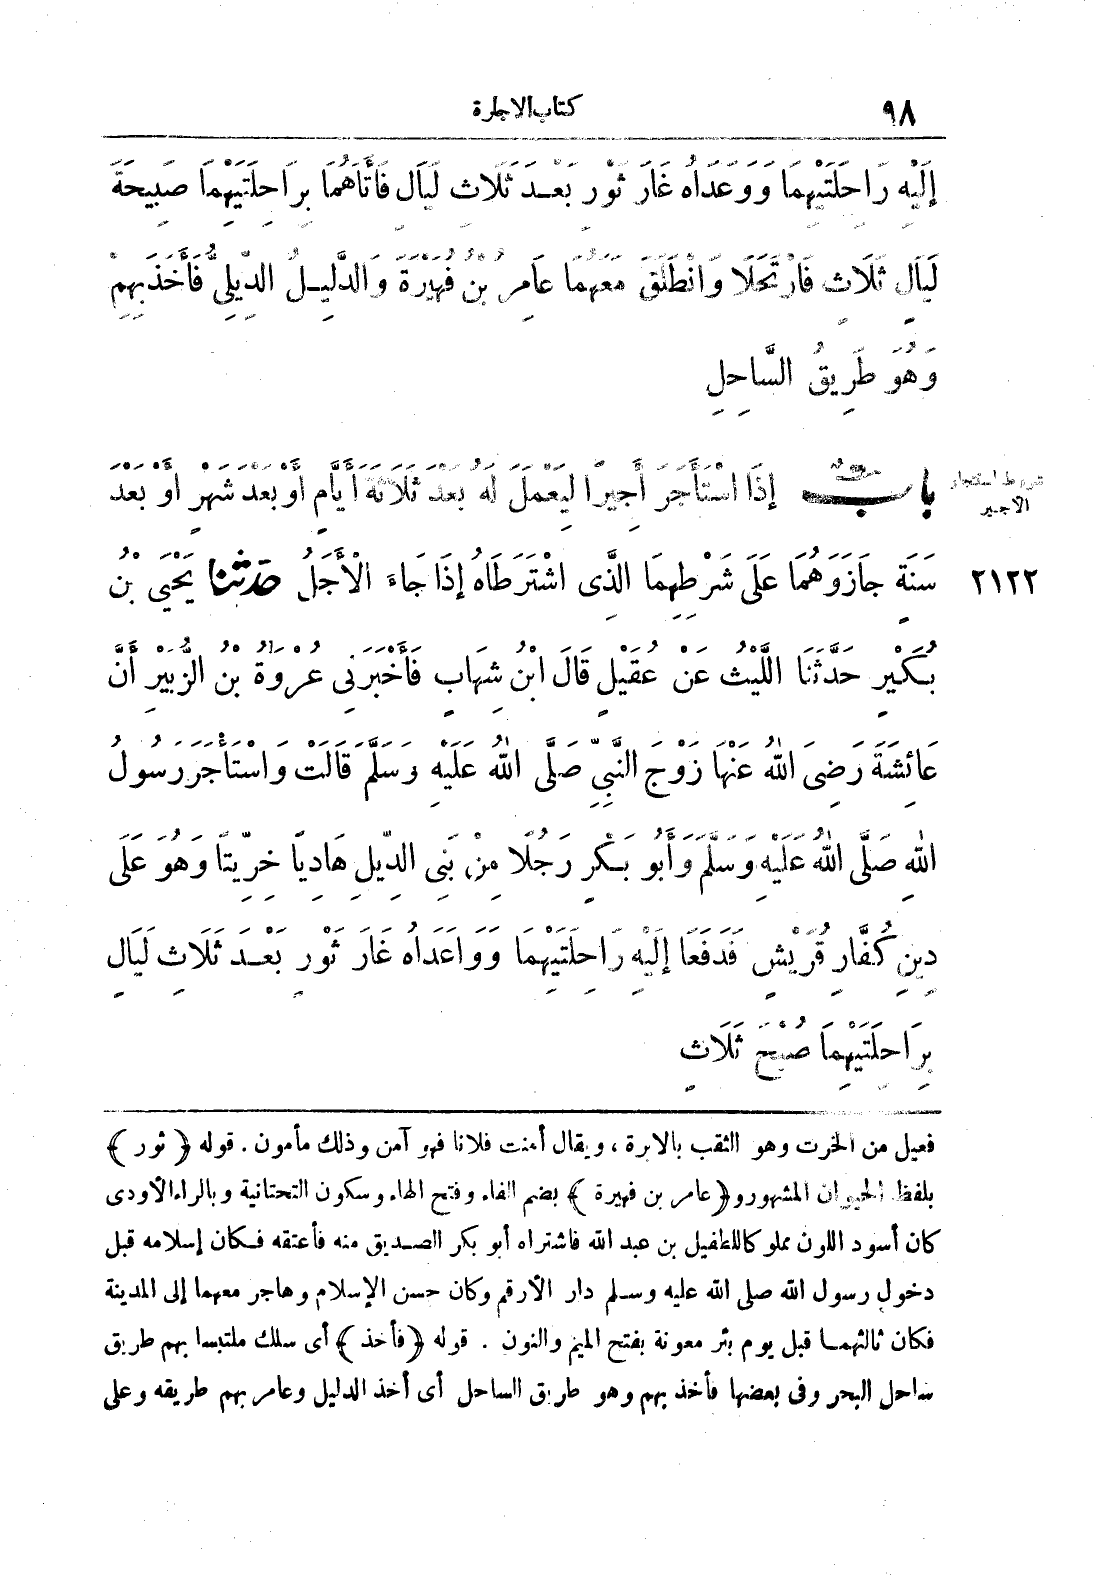 ٩٨
كتاب الاجارة
إِلَيْهِ رَاحِلَتَيْهِمَا وَوَعَدَاهُ غَارَ ثَوْرٍ بَعْدَ ثَلَاثِ لَيَالٍ فَأَتَاهُمَا بِرَاحِلَتَيْهِمَا صَبِيحَةَ
لَيَالٍ ثَلَاثٍ فَارْتَحَلَا وَانْطَلَقَ مَعَهُمَا عَامِرُ بْنُ فُهَيْرَةَ وَالدَّلِيلُ الدِّيلِيُّ فَأَخَذَ بِهِمْ
وَهُوَ طَرِيقُ السَّاحِلِ
بابٌ إِذَا اسْتَأْجَرَ أَجِيرًا لِيَعْمَلَ لَهُ بَعْدَ ثَلَاثَةِ أَيَّامٍ أَوْ بَعْدَ شَهْرٍ أَوْ بَعْدَ
شروط استئجار
الأجير
سَنَةٍ جَازَ وَهُمَا عَلَى شَرْطِهِمَا الَّذِى اشْتَرَطَاهُ إِذَا جَاءَ الْأَجَلُ حَدَّثَنَا يَحْيَى بْنُ
٢١٢٢
بُكَيْرٍ حَدَّثَنَا اللَّيْثُ عَنْ عُقَيْلٍ قَالَ ابْنُ شِهَابٍ فَأَخْبَرَنِى عُرْوَةُ بْنُ الزُّبَيْرِ أَنَّ
عَائِشَةَ رَضِىَ اللهُ عَنْهَا زَوْجَ النَّبِيِّ صَلَّى اللهُ عَلَيْهِ وَسَلَّمَ قَالَتْ وَاسْتَأْجَرَ رَسُولُ
اللهِ صَلَّى اللهُ عَلَيْهِ وَسَلَّمَ وَأَبُو بَكْرٍ رَجُلًا مِنْ بَنِى الدِّيلِ هَادِيًا خِرِّيتًا وَهُوَ عَلَى
دِينِ كُفَّارِ قُرَيْشٍ فَدَفَعَا إِلَيْهِ رَاحِلَتَيْهِمَا وَوَاعَدَاهُ غَارَ ثَوْرٍ بَعْدَ ثَلَاثِ لَيَالٍ
بِرَاحِلَتَيْهِمَا صُبْحَ ثَلَاثٍ
فعيل من الخرت وهو الثقب بالابرة ، ويقال أمنت فلانا فهو آمن وذلك مأمون . قوله ﴿ ثور ﴾
بلفظ الحيوان المشهور و﴿عامر بن فهيرة ﴾ بضم الفاء وفتح الهاء وسكون التحتانية وبالراء الأزدى
كان أسود اللون مملوكا للطفيل بن عبد الله فاشتراه أبو بكر الصديق منه فأعتقه فكان إسلامه قبل
دخول رسول الله صلى الله عليه وسلم دار الأرقم وكان حسن الإسلام وهاجر معهما إلى المدينة
فكان ثالثهما قبل يوم بئر معونة بفتح الميم والنون . قوله ﴿فأخذ ﴾ أى سلك ملتبسا بهم طريق
ساحل البحر وفى بعضها فأخذ بهم وهو طريق الساحل أى أخذ الدليل وعامر بهم طريقه وعلى